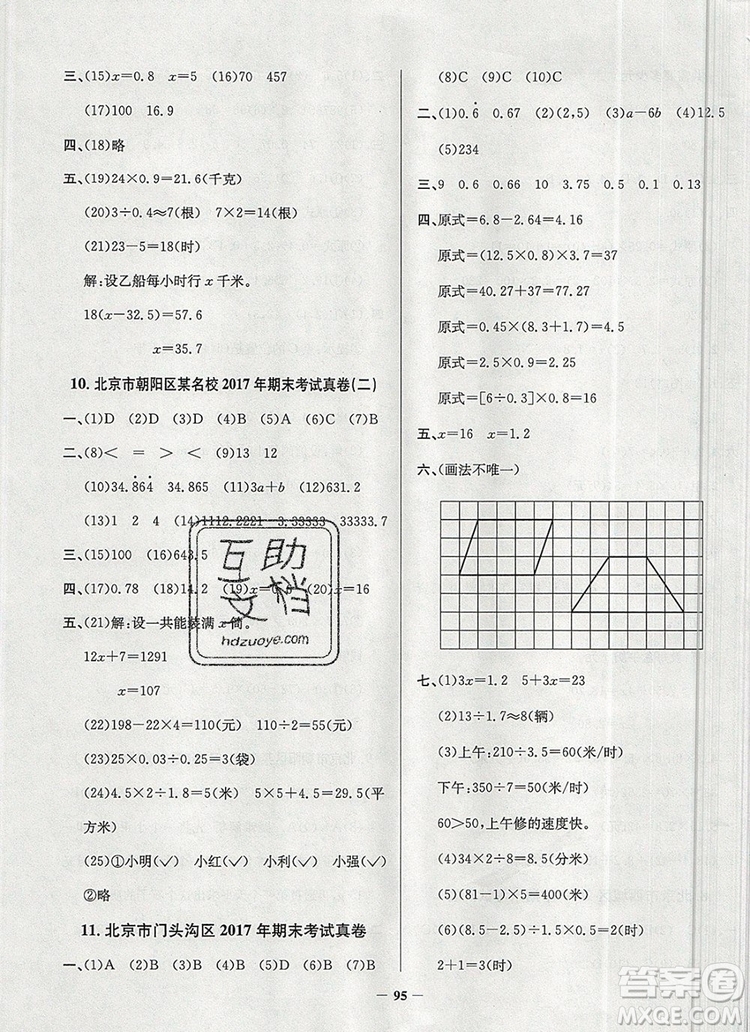 三、(15)x=0.8　x=5　(16)70　457
(17)100　16.9
四、(18)略
五、(19)24×0.9=21.6(千克)
(20)3÷0.4≈7(根)　7×2=14(根)
(21)23-5=18(时)
解:设乙船每小时行 x 千米。
18(x-32.5)=57.6
x=35.7
10. 北京市朝阳区某名校 2017 年期末考试真卷(二)
一、(1)D　(2)D　(3)D　(4)B　(5)A　(6)C　(7)B
二、(8)<　=　>　<　(9)13　12
(10)34.8̇64̇　34.865　(11)3a+b　(12)631.2
(13)1　2　4　(14)1112.2221　3.33333　33333.7
三、(15)100　(16)643.5
四、(17)0.78　(18)14.2　(19)x=10　(20)x=16
五、(21)解:设一共能装满 x 筒。
12x+7=1291
x=107
(22)198-22×4=110(元)　110÷2=55(元)
(23)25×0.03÷0.25=3(袋)
(24)4.5×2÷1.8=5(米)　5×5+4.5=29.5(平
方米)
(25)①小明(✓)　小红(✓)　小利(✓)　小强(✓)
②略
11. 北京市门头沟区 2017 年期末考试真卷
一、(1)A　(2)B　(3)B　(4)B　(5)B　(6)A　(7)B
(8)C　(9)C　(10)C
二、(1)0.6̇　0.67　(2)(2,5)　(3)a-6b　(4)12.5
(5)234
三、9　0.6　0.9　10　3.75　0.5　0.1　0.13
四、原式=6.8-2.64=4.16
原式=(12.5×0.8)×3.7=37
原式=40.27+37=77.27
原式=0.45×(8.3+1.7)=4.5
原式=[6÷0.3]×0.8=16
五、x=16　x=1.2
六、(画法不唯一)
七、(1)3x=1.2　5+3x=23
(2)13÷1.7≈8(辆)
(3)上午:210÷3.5=60(米/时)
下午:350÷7=50(米/时)
60>50,上午修的速度快。
(4)34×2÷8=8.5(分米)
(5)(81-1)×5=400(米)
(6)(8.5-2.5)÷1.5×0.5=2(时)
2+1=3(时)
— 95 —
互助
文档
hdzuoye.com
答案圈
MXQE.COM